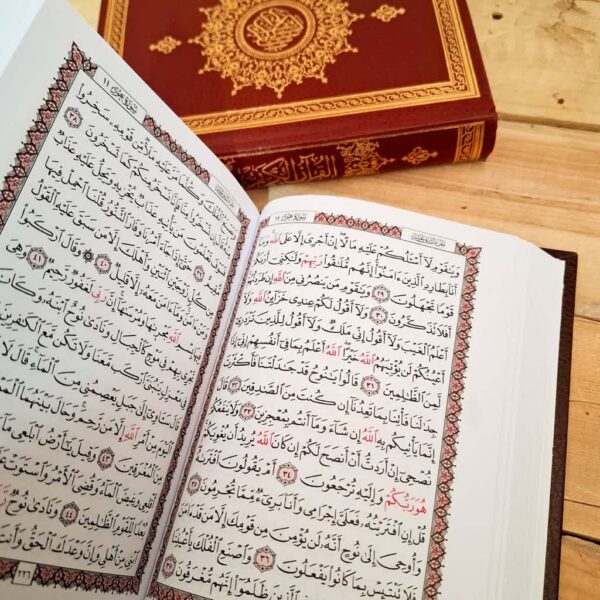 الجزء الثاني عشر
سورة هود ١١
وَيَٰقَوْمِ لَآ أَسْـَٔلُكُمْ عَلَيْهِ مَالًا إِنْ أَجْرِىَ إِلَّا عَلَى ٱللَّهِ وَمَآ
أَنَا۠ بِطَارِدِ ٱلَّذِينَ ءَامَنُوٓا۟ إِنَّهُم مُّلَٰقُوا۟ رَبِّهِمْ وَلَٰكِنِّىٓ أَرَىٰكُمْ
قَوْمًا تَجْهَلُونَ ٢٩ وَيَٰقَوْمِ مَن يَنصُرُنِى مِنَ ٱللَّهِ إِن طَرَدتُّهُمْ
أَفَلَا تَذَكَّرُونَ ٣٠ وَلَآ أَقُولُ لَكُمْ عِندِى خَزَآئِنُ ٱللَّهِ وَلَآ
أَعْلَمُ ٱلْغَيْبَ وَلَآ أَقُولُ إِنِّى مَلَكٌ وَلَآ أَقُولُ لِلَّذِينَ تَزْدَرِىٓ
أَعْيُنُكُمْ لَن يُؤْتِيَهُمُ ٱللَّهُ خَيْرًا ٱللَّهُ أَعْلَمُ بِمَا فِىٓ أَنفُسِهِمْ إِنِّىٓ إِذًا
لَّمِنَ ٱلظَّٰلِمِينَ ٣١ قَالُوا۟ يَٰنُوحُ قَدْ جَٰدَلْتَنَا فَأَكْثَرْتَ
جِدَٰلَنَا فَأْتِنَا بِمَا تَعِدُنَآ إِن كُنتَ مِنَ ٱلصَّٰدِقِينَ ٣٢ قَالَ
إِنَّمَا يَأْتِيكُم بِهِ ٱللَّهُ إِن شَآءَ وَمَآ أَنتُم بِمُعْجِزِينَ ٣٣ وَلَا يَنفَعُكُمْ
نُصْحِىٓ إِنْ أَرَدتُّ أَنْ أَنصَحَ لَكُمْ إِن كَانَ ٱللَّهُ يُرِيدُ أَن يُغْوِيَكُمْ
هُوَ رَبُّكُمْ وَإِلَيْهِ تُرْجَعُونَ ٣٤ أَمْ يَقُولُونَ ٱفْتَرَىٰهُ
قُلْ إِنِ ٱفْتَرَيْتُهُۥ فَعَلَىَّ إِجْرَامِى وَأَنَا۠ بَرِىٓءٌ مِّمَّا تُجْرِمُونَ ٣٥
وَأُوحِىَ إِلَىٰ نُوحٍ أَنَّهُۥ لَن يُؤْمِنَ مِن قَوْمِكَ إِلَّا مَن قَدْ ءَامَنَ
فَلَا تَبْتَئِسْ بِمَا كَانُوا۟ يَفْعَلُونَ ٣٦ وَٱصْنَعِ ٱلْفُلْكَ بِأَعْيُنِنَا
ٱلَّذِينَ ظَلَمُوٓا۟ إِنَّهُم مُّغْرَقُونَ ٣٧
سورة هود ١١
وَيَصْنَعُ ٱلْفُلْكَ وَكُلَّمَا مَرَّ عَلَيْهِ مَلَأٌ مِّن قَوْمِهِۦ سَخِرُوا۟
مِنْهُ قَالَ إِن تَسْخَرُوا۟ مِنَّا فَإِنَّا نَسْخَرُ مِنكُمْ كَمَا تَسْخَرُونَ ٣٨
فَسَوْفَ تَعْلَمُونَ مَن يَأْتِيهِ عَذَابٌ يُخْزِيهِ وَيَحِلُّ عَلَيْهِ عَذَابٌ
مُّقِيمٌ ٣٩ حَتَّىٰٓ إِذَا جَآءَ أَمْرُنَا وَفَارَ ٱلتَّنُّورُ قُلْنَا ٱحْمِلْ فِيهَا
مِن كُلٍّ زَوْجَيْنِ ٱثْنَيْنِ وَأَهْلَكَ إِلَّا مَن سَبَقَ عَلَيْهِ ٱلْقَوْلُ
وَمَنْ ءَامَنَ وَمَآ ءَامَنَ مَعَهُۥٓ إِلَّا قَلِيلٌ ٤٠ وَقَالَ ٱرْكَبُوا۟
ٱللَّهِ مَجْر۪ىٰهَا وَمُرْسَىٰهَآ إِنَّ رَبِّى لَغَفُورٌ رَّحِيمٌ ٤١ وَهِىَ
فِى مَوْجٍ كَٱلْجِبَالِ وَنَادَىٰ نُوحٌ ٱبْنَهُۥ وَكَانَ
مَعْزِلٍ يَٰبُنَىَّ ٱرْكَب مَّعَنَا وَلَا تَكُن مَّعَ ٱلْكَٰفِرِينَ
قَالَ سَـَٔاوِىٓ إِلَىٰ جَبَلٍ يَعْصِمُنِى مِنَ ٱلْمَآءِ قَالَ لَا
ٱلْيَوْمَ مِنْ أَمْرِ ٱللَّهِ إِلَّا مَن رَّحِمَ وَحَالَ بَيْنَهُمَا ٱلْمَوْجُ
ٱلْمُغْرَقِينَ ٤٣ وَقِيلَ يَٰٓأَرْضُ ٱبْلَعِى مَآءَكِ
أَقْلِعِى وَغِيضَ ٱلْمَآءُ وَقُضِىَ ٱلْأَمْرُ وَٱسْتَوَتْ
بُعْدًا لِّلْقَوْمِ ٱلظَّٰلِمِينَ ٤٤ وَنَادَىٰ نُوحٌ
ٱبْنِى مِنْ أَهْلِى وَإِنَّ وَعْدَكَ ٱلْحَقُّ وَأَنتَ
٢٢٦
القرآن الكريم